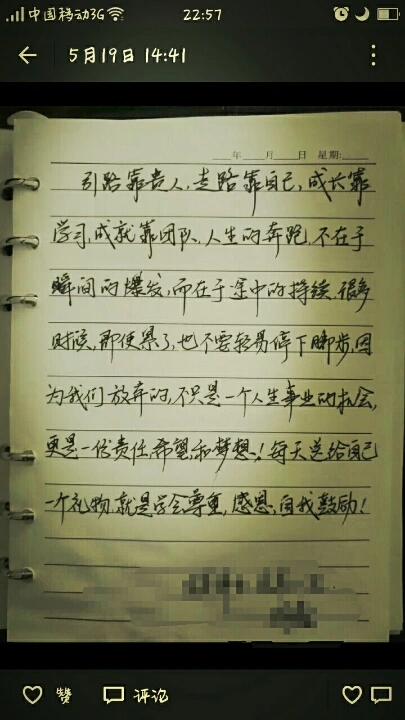 中国移动3G 22:57
5月19日 14:41
____年____月____日 星期:____
引路靠贵人,走路靠自己,成长靠
学习,成就靠团队,人生的奔跑,不在于
瞬间的爆发,而在于途中的持续.很多
时候,即使累了,也不要轻易停下脚步,因
为我们放弃的,不只是一个人生事业的机会,
更是一份责任,希望和梦想!每天送给自己
一个礼物,就是学会尊重,感恩,自我鼓励!
赞 评论